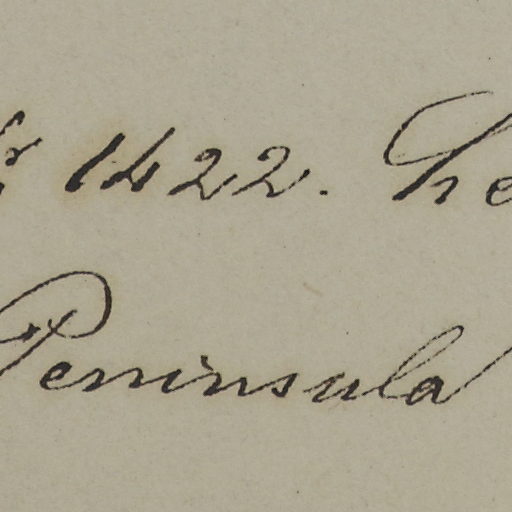 1422. he
Peninsula